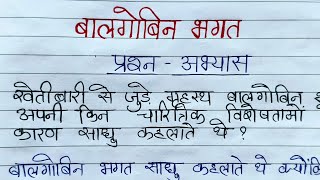 बालगोबिन भगत
प्रश्न - अभ्यास
खेतीबारी से जुड़े गृहस्थ बालगोबिन
अपनी किन चारित्रिक विशेषताओं
कारण साधु कहलाते थे ?
बालगोबिन भगत साधु कहलाते थे